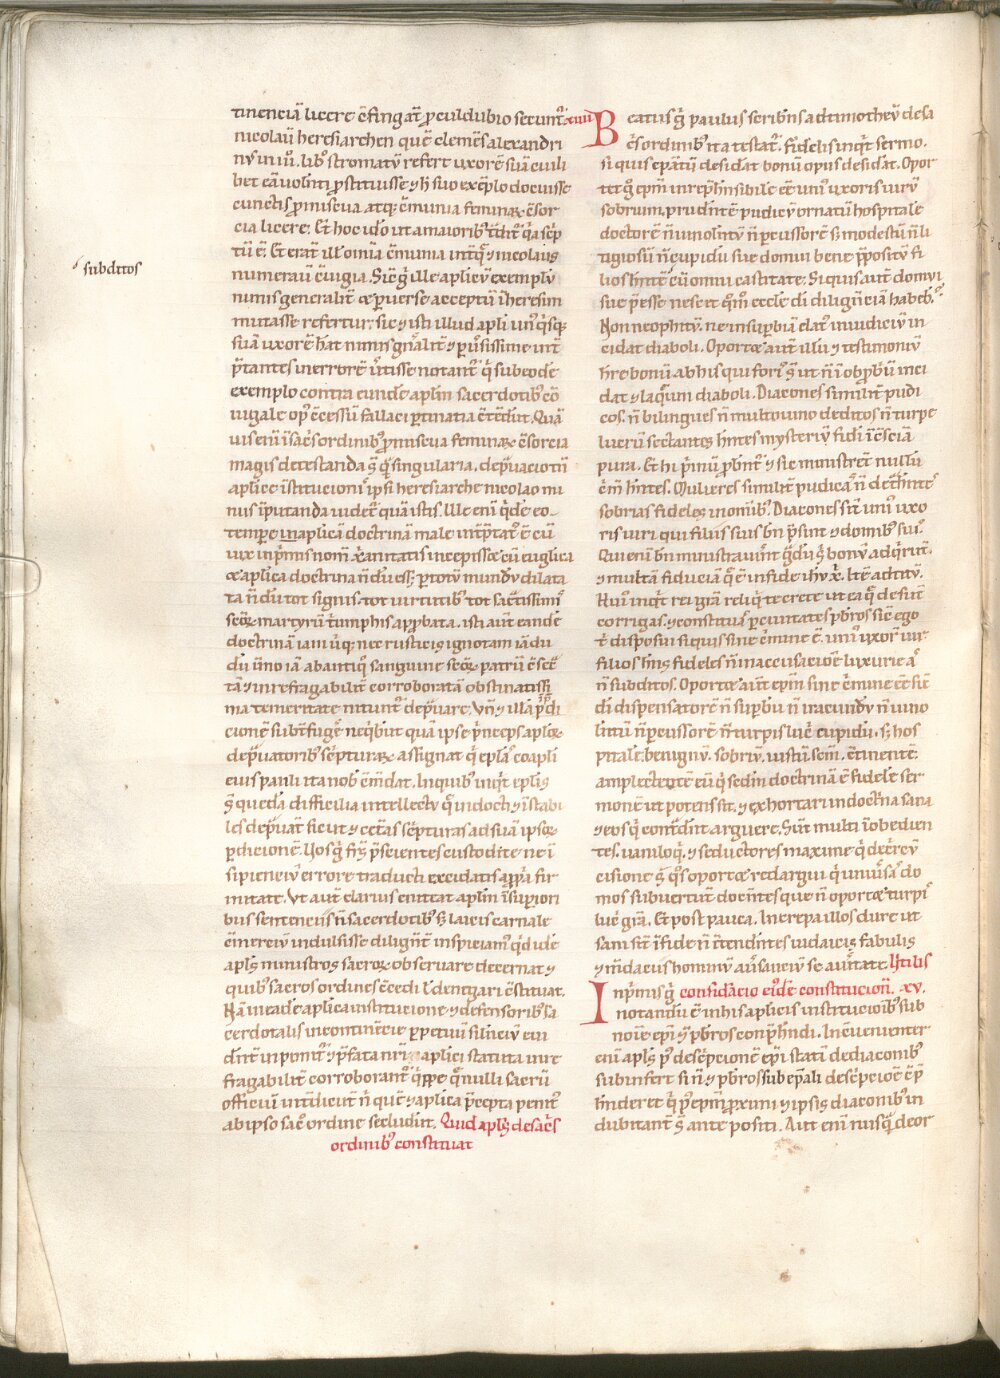 subditos
tinenciā licere ↄ̄fingāt ꝓculdubio secuntᷣ
nicolaū heresiarchen quē clemēs alexandri
nꝰ in iii. libᵒ stromatū refert uxorē suā cuili
bet eā uolēti ꝓstituisse ⁊ h̄ suo exēplo docuisse
cunctis ꝓmiscua atqꝫ ↄ̄munia feminaꝝ ↄ̄sor
cia licere. Et hoc
tū ē. Et erāt ill' omīa ↄ̄munia
numerauī ↄ̄iugia. Sic ḡ ille aplicū exemplū
nimis generalit̄ ⁊ ꝑuerse acceptū ī heresim
mutasse refertur. sic ⁊ isti illud apli unꝰ qisqꝫ
suā uxorē hāt nimis gn̄alit̄ ⁊ ꝑuersissime int̄
p̄tantes in errorē notantᷣ qͥ sub eodē
exemplo contra eundē aplm̄ sacerdotibꝰ cō
iugale opꝰ ↄ̄cessū fallaci ꝑtinatia ↄ̄tēdūt. Quā
uis eni ī sac̄s ordinibꝰ ꝓmiscua feminaꝝ ↄ̄sorcia
magis detestanda sūt qͣ singularia. dep̄uacioni tn̄
aplice īstitucioni ipsi heresiarche nicolao mi
nus īputanda uidet̄ quā istis. Ille eni qͥdē eo
tempore in aplicā doctrinā male int̄p̄tatᷣ ē cū
uix inp̄mis nomē xp̄ianitatis incepisset cū euglica
⁊ aplica doctrina n̄dū esset ꝑ totū mundū dilata
ta n̄dū tot signis. tot uirtutibꝰ tot sāctissimi
seqꝝ martyrū t̄umphis app̄bata. isti aut̄ eandē
doctrinā iam utiqꝫ nec rusticis ignotam iā du
dū īmo iā ab antiqͦ sanguine seqꝝ patrū ↄ̄sec̄
tā ⁊ inrefragabilit̄ corroboratā obstinatissi
ma temeritate nitunt̄ dep̄uare. Vn̄ ⁊ illā p̄di
cionē subt̄fuḡe neqͥbūt quā ipse p̄nceps aploꝝ
dep̄uatoribꝰ sc̄pturaꝝ assignat qͥ eplas coapli
sui pauli ita nob̄ ↄ̄mēdat. In quibꝰ inqͥt eplis
s̄ quedā difficilia intellectu q̄ indocti ⁊ īstabi
les dep̄uāt sicut ⁊ cet̄as sc̄pturas ad suā ipsoꝝ
ꝑdicionē. Uos gͥ frs̄ p̄scientes custodite ne ī
sipienciū errore traducti excidatis a ꝓpͥa fir
mitate. Ut aut̄ clarius eniteat aplm̄ ī suꝑiori
bus sentenciis n̄ sacerdotibꝰ s̄ laicis carnale
ↄ̄merciū indulsisse diligent̄ inspiciamꝰ qͥd idē
aplꝰ ministros sacroꝝ obseruare decernat ⁊
quibꝰ sacros ordines ↄ̄cedi ł denegari ↄ̄stituat.
Nā in eadē aplica institucione ⁊ defensoribꝰ sa
cerdotalis incontinēcie ꝑpetuū silenciū eui
dent̄ inponitᷣ ⁊ p̄fata nr̄i aplici statuta inre
fragabilit̄ corroborantᷣ qͥppe qͥ nulli sacrū
officiū int̄dicūt n̄ quē ⁊ aplica p̄cepta penitꝰ
ab ipso sac̄ ordine secludūt. Quid aplꝰ de sac̄s
ordinibꝰ constituat
xiiii
Beatus gͥ paulus scribēns ad timotheū de sac̄
ↄ̄s ordinibꝰ ita testatᷣ. fidelis inqͥt sermo.
si quis epātū desiderat bonū opus desiderat. Opor
tet gͦ epm̄ inrep̄hēnsibile ee unꝰ uxoris uirū
sobrium. prudēntē pudicū ornatū hospitale
doctorē n̄ uinolentū n̄ ꝑcussorē s̄ modestū n̄ li
tigiosū n̄ cupidū sue domui bene p̄positū fi
lios hn̄tē cū omni castitate. Si quis aut̄ domui
sue p̄esse nescit qͦm̄ eccle di diligenciā habebᷣ?
Non neophitū. ne in suꝑbiā elatꝰ in iudiciū in
cidat diaboli. Oportet aut̄ illū ⁊ testimoniū
h̄re bonū ab his qui foris s̄ ut n̄ ī obp̄briū inci
dat ⁊ laq̄um diaboli. Diacones similit̄ pudi
cos. n̄ bilingues n̄ multo uino deditos n̄ turpe
lucrū sectantes hn̄tes mysteriū fidei ī ↄ̄sciā
pura. Et hi p̄mū ꝓbentᷣ ⁊ sic ministrent nullū
c̄m̄ hn̄tes. Mulieres similit̄ pudicas n̄ det̄hentes
sobrias fideles in omīibꝰ. Diacones sint unꝰ uxo
ris uiri qui filiis suis bn̄ p̄sint ⁊ domibꝰ suis.
Qui enī bn̄ ministrauerint gradū s̄ bonū adqͥrent
⁊ multā fiduciā q̄ ē in fide ihū xp̄. Itē ad titū.
Huiꝰ inqͥt rei grā reliqͥ te crete ut ea q̄ desunt
corrigas. ⁊ constituas ꝑ ciuitates p̄bros sic ⁊ ego
t̄ disposui si quis sine c̄mine ē. unꝰ uxoris uir
filios hn̄s fideles n̄ in accusacione luxurie aut
n̄ subditos. Oportet aut̄ epm̄ sine c̄mine ee sic
di dispensatorē n̄ suꝑbū n̄ iracundū n̄ uino
lentū n̄ ꝑcussorē n̄ turpis lucri cupidū. s̄ hos
pitalē. benignū. sobriū. iustū. scm̄. ↄ̄tinentē.
amplectentē eū q̄ sedm̄ doctrinā ē fidele ser
monē ut potens sit. ⁊ exhortari in doctͥna sana
⁊ eos qͥ contͣdicūt arguere. Sūt multi īobedien
tes. uaniloqͥ. ⁊ seductores maxime qͥ de circū
cisione s̄ qͦs oportet redargui qͥ uniuersas do
mos subuertūt docentes que n̄ oportet turpis
lucͥ grā. Et post pauca. Increpa illos dure ut
sani sīt ī fide n̄ ītendentes iudaicis fabulis
⁊ mandatis hominū auersanciū se a ueritate. Utilis
Inpͥmis gͥ considacio eiꝰdē constitucionis. xv.
notandū ē in his aplicis institucionibꝰ sub
noīe epi ⁊ p̄bros conp̄hēndi. In ↄ̄uenienter
eni aplꝰ post desc̄pcionē epi statī de diaconibꝰ
subinfert si n̄ ⁊ p̄bros sub epāli desc̄pcōe ↄ̄p
henderet qͥ post epm̄ ꝓximi ⁊ ipsis diaconibꝰ in
dubitant̄ s̄ ante positi. Aut eni nusqͣ de or